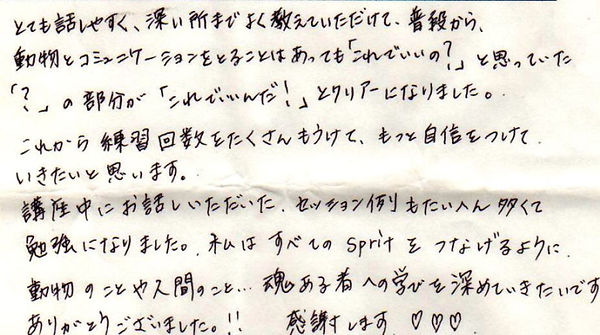 とても話しやすく、深い所までよく教えていただけて、普段から、
動物とコミュニケーションをとることはあっても「これでいいの?」と思っていた
「?」の部分が「これでいいんだ!」とクリアーになりました。
これから練習回数をたくさんもうけて、もっと自信をつけて
いきたいと思います。
講座中にお話しいただいた、セッション例もたいへん多くて
勉強になりました。私はすべてのspritをつなげるように、
動物のことや人間のこと…魂ある者への学びを深めていきたいです
ありがとうございました。!! 感謝します ♡♡♡